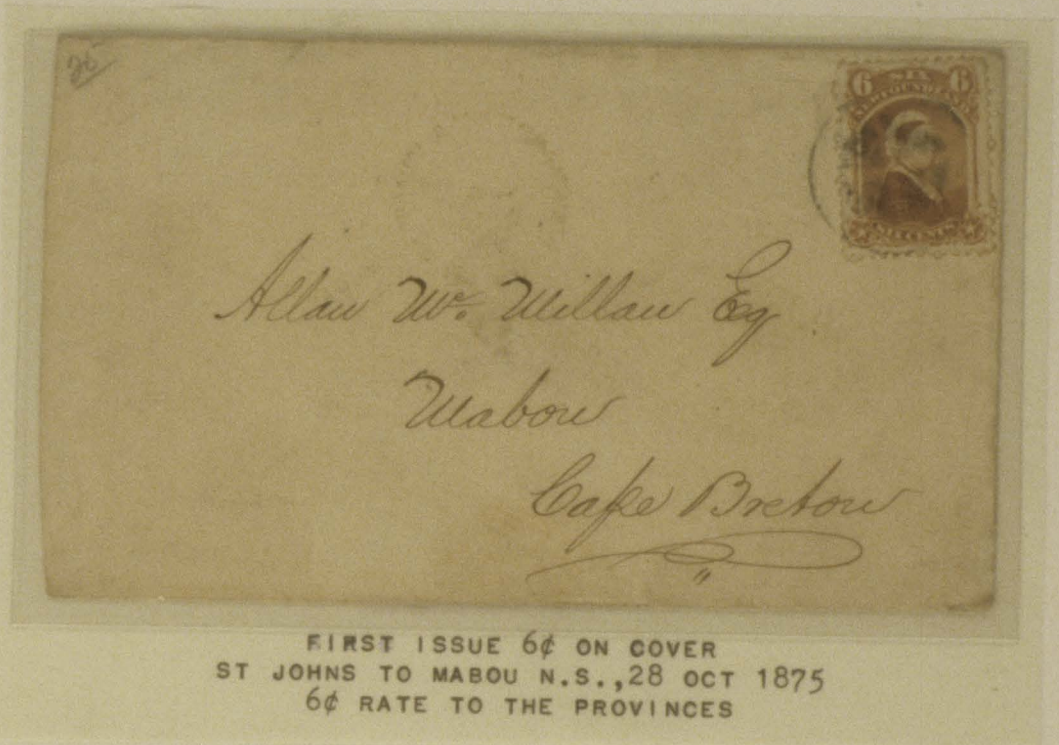 20
6 SIX 6
NEWFOUNDLAND
SIX CENTS
Allan Mc. Millan Eq
Mabou
Cape Breton
FIRST ISSUE 6¢ ON COVER
ST JOHNS TO MABOU N.S., 28 OCT 1875
6¢ RATE TO THE PROVINCES